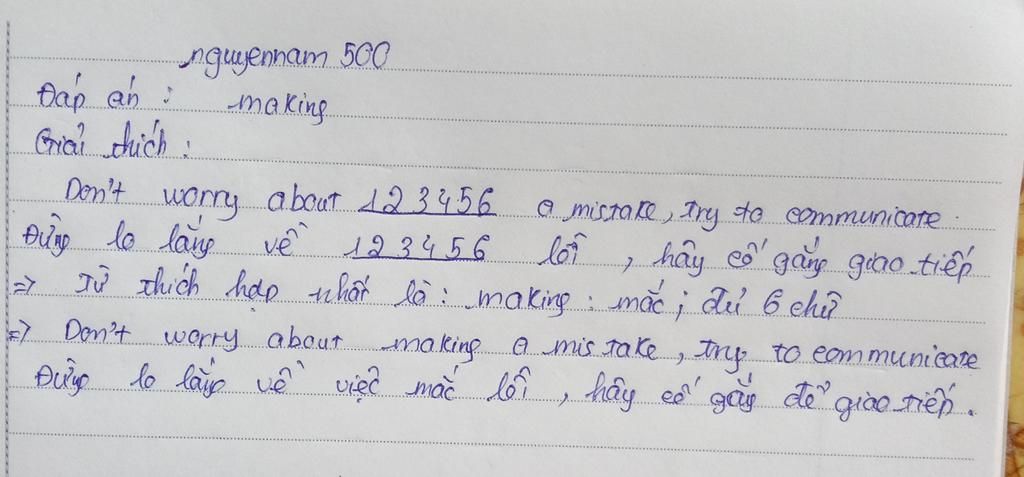 nguyennam 500
Đáp án : making
Giải thích :
Don't worry about 123456 a mistake, try to communicate.
Đừng lo lắng về 123456 lỗi , hãy cố gắng giao tiếp
=> Từ thích hợp nhất là : making : mắc ; đủ 6 chữ
=> Don't worry about making a mistake, try to communicate
Đừng lo lắng về việc mắc lỗi , hãy cố gắng để giao tiếp.